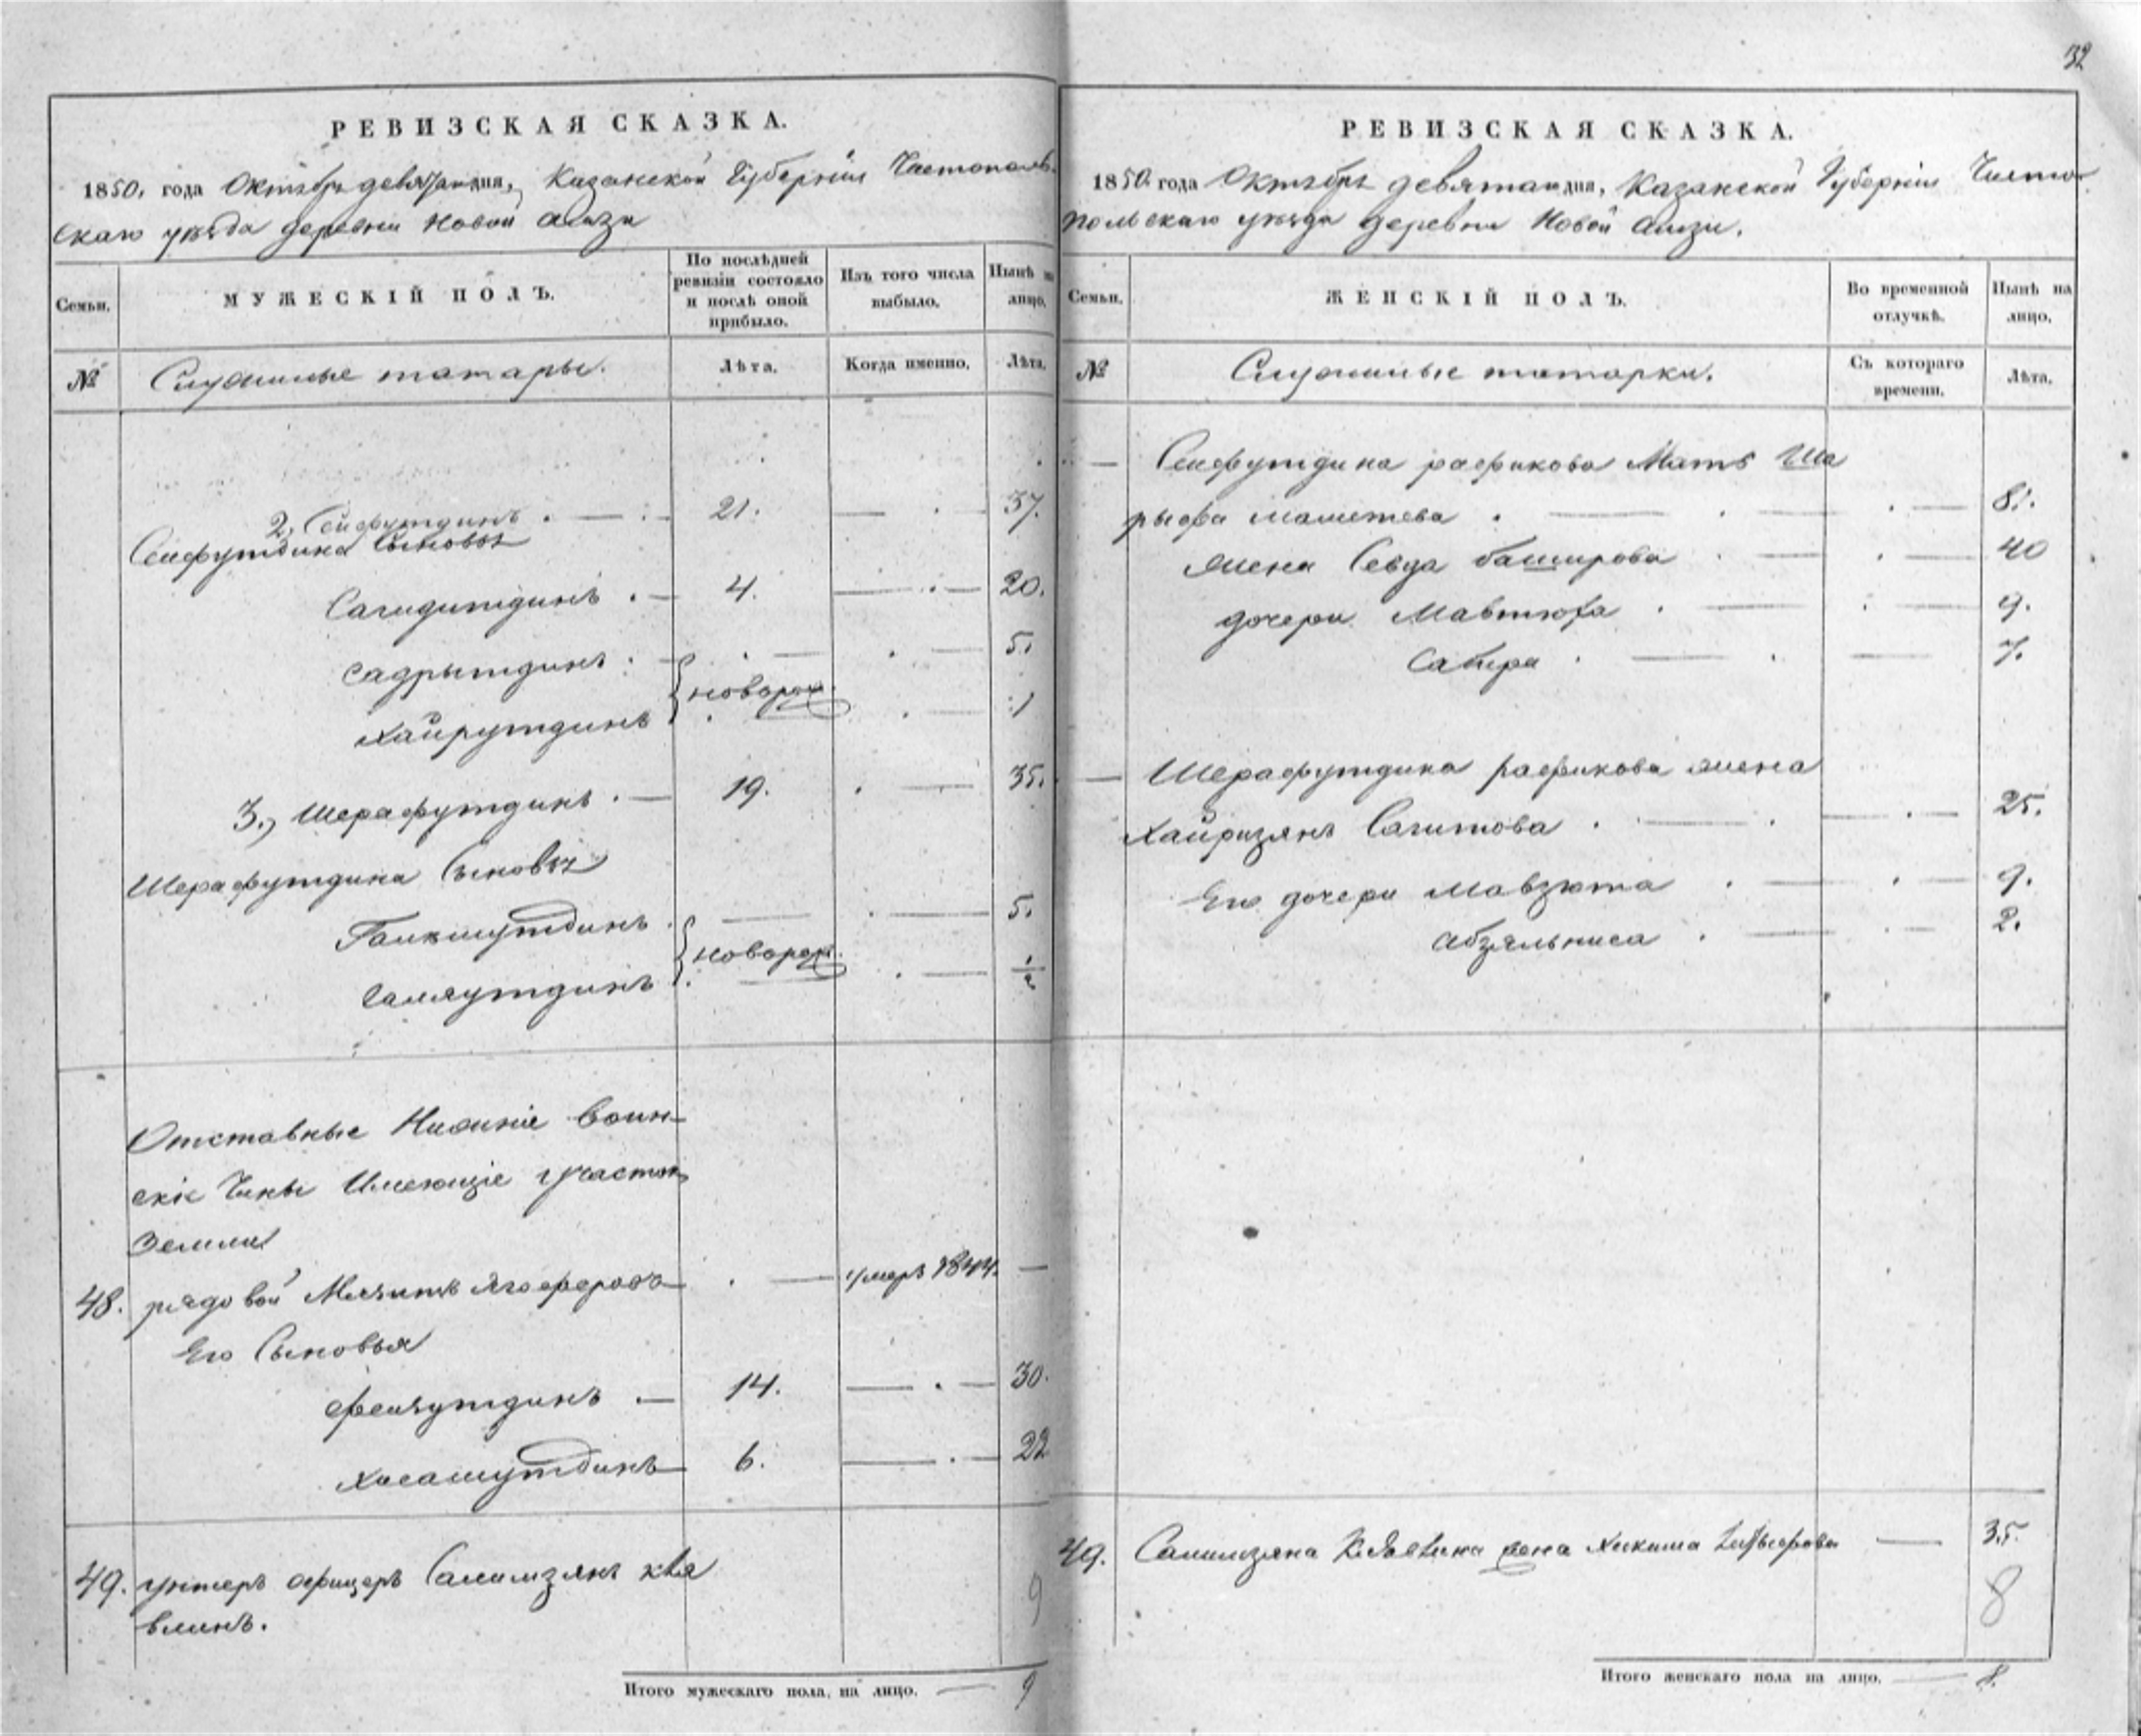 32
РЕВИЗСКАЯ СКАЗКА.
1850. года Октября девятаго дня, Казанской Губерніи Чистополь-
скаго уѣзда деревни Новой Амзи
Семьи.
МУЖЕСКІЙ ПОЛЪ.
По послѣдней ревизіи состояло и послѣ оной прибыло.
Изъ того числа выбыло.
Нынѣ на лицо.
№
Служилые татары.
Лѣта.
Когда именно.
Лѣта.
2, Сейфутдинъ . — 21. — . — 37.
Сейфутдина Сыновья
Сагидитдинъ . — 4. — . — 20.
Садрытдинъ . — . — 5.
новорож.
Хайрутдинъ . — 1
3., Шерафутдинъ . — 19. . — 35.
Шерафутдина Сыновья
5.
новорож.
1/2
Отставные Нижніе воин-
скіе Чины Имеющіе участок
Земли
48. рядовой Ягоферовъ . — умеръ 1844. —
Его Сыновья
14. — . — 30.
Хисамутдинъ 6. — . — 22
49. унтеръ офицеръ Салимзянъ
влинъ.
9
Итого мужескаго пола, на лицо. — 9
РЕВИЗСКАЯ СКАЗКА.
1850. года Октября девятаго дня, Казанской Губерніи Чисто-
польскаго уѣзда деревни Новой Амзи.
Семьи.
ЖЕНСКІЙ ПОЛЪ.
Во временной отлучкѣ.
Нынѣ на лицо.
№
Служилые татарки.
Съ котораго времени.
Лѣта.
— Сейфутдина рафикова Мать Ша
рыфа маметева . — . . — 81.
жена Севда баширова . — . — 40
дочери Мавтюха . — . — 9.
Сабира . — . — 7.
— Шерафутдина рафикова жена
Хайризянъ Сагитова . — . — . — 25.
Его дочери Мавзюта . — . — 9.
Абзяльниса . — . — 2.
49. Салимзяна жена — 35.
8
Итого женскаго пола на лицо. — 8.